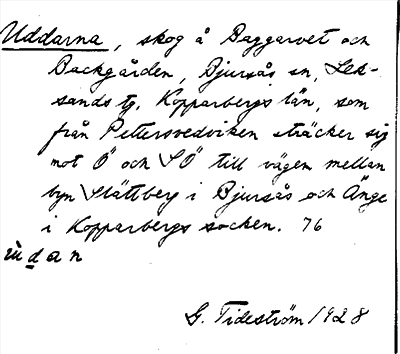 Uddarna, skog å Baggarvet och
Backgården, Bjursås sn, Lek-
sands tg. Kopparbergs län, som
från Pettersvedviken sträcker sig
mot Ö och SÖ till vägen mellan
byn Slättberg i Bjursås och Änge
i Kopparbergs socken. 76
ùdan
G. Tideström 1928